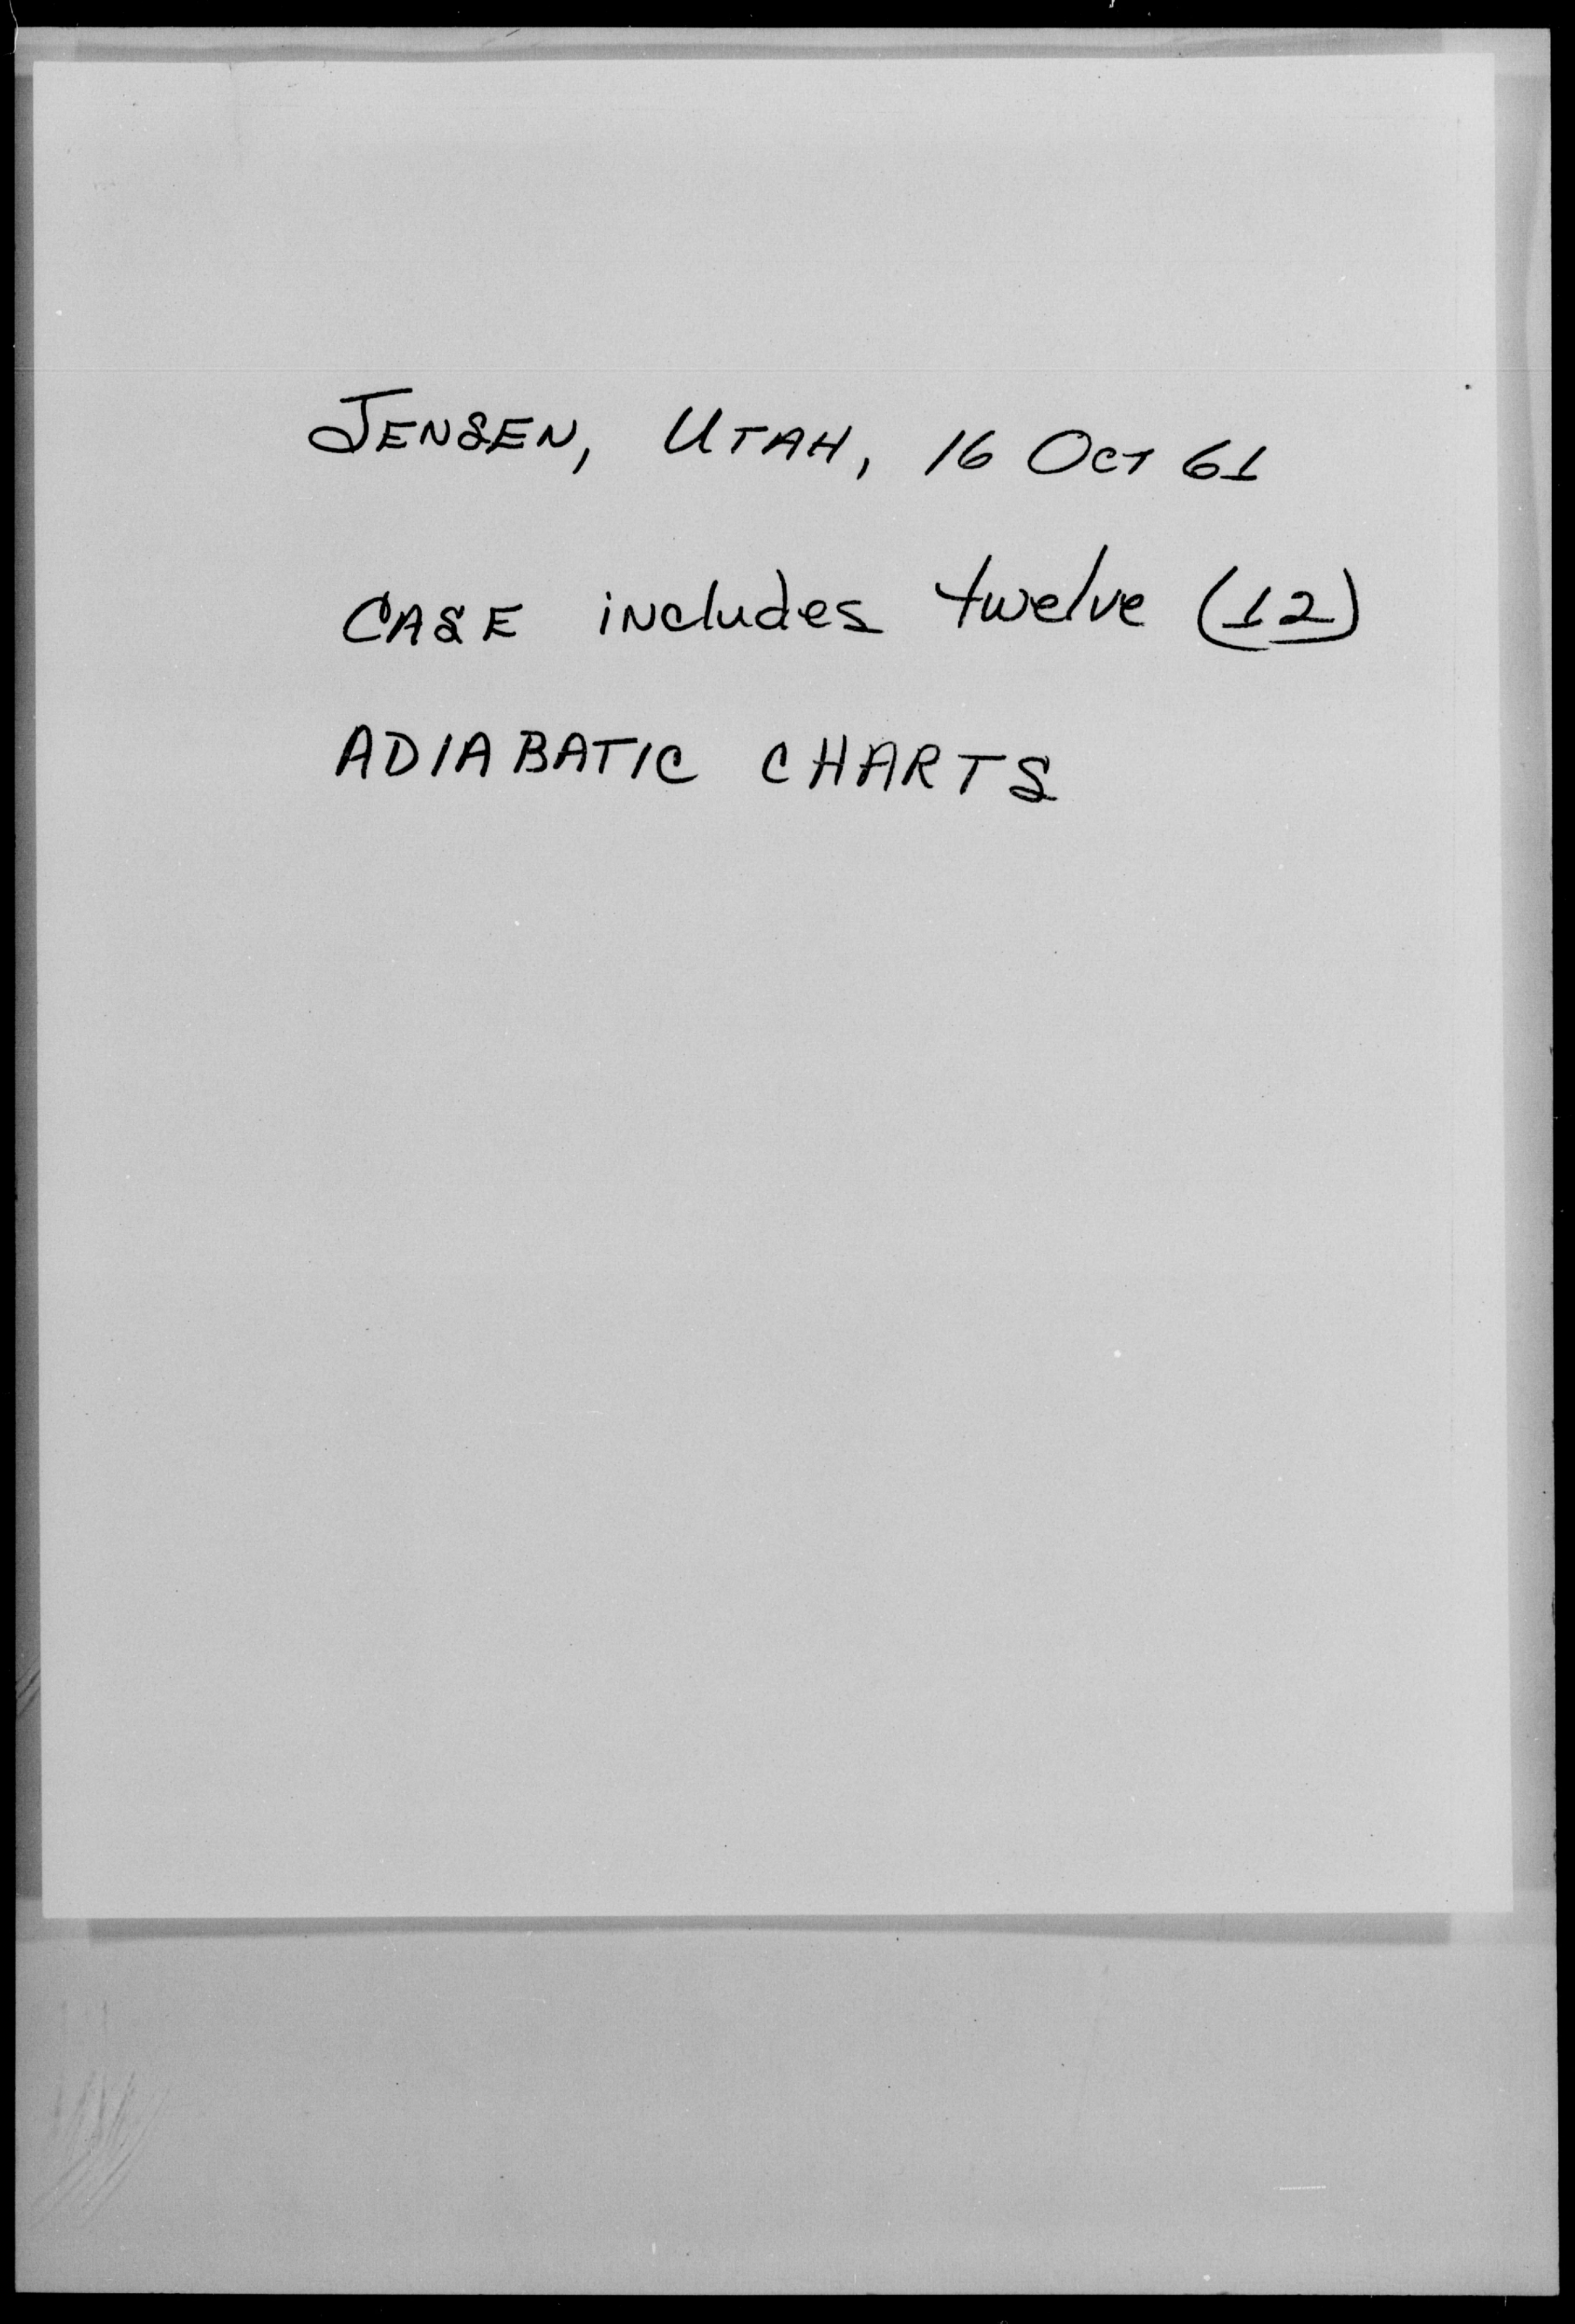 JENSEN, UTAH, 16 OCT 61
CASE includes twelve (12)
ADIABATIC CHARTS